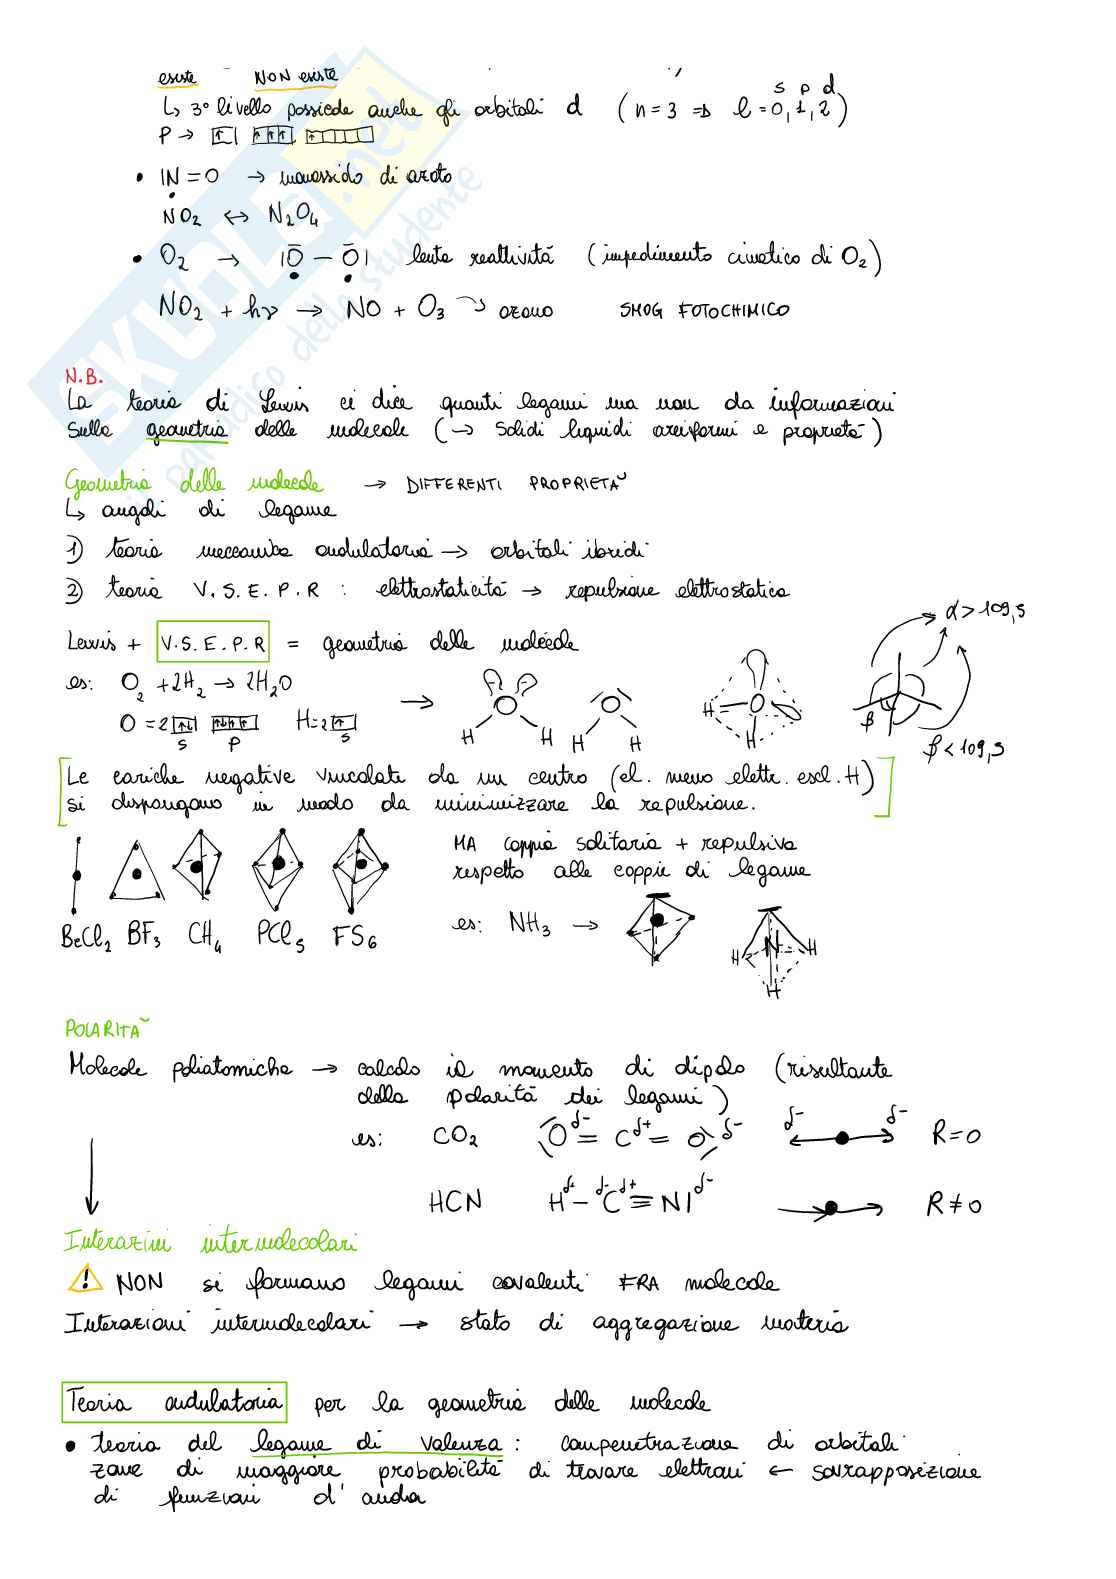 esiste NON esiste
↳ 3° livello possiede anche gli orbitali d (n=3 ⇒ l=0,1,2)
s p d
P →
• |N=O → monossido di azoto
NO₂ ↔ N₂O₄
• O₂ → |O – O| lenta reattività (impedimento cinetico di O₂)
NO₂ + hν → NO + O₃ → ozono SMOG FOTOCHIMICO
N.B.
La teoria di Lewis ci dice quanti legami ma non da informazioni
sulla geometria delle molecole (→ solidi liquidi aeriformi e proprietà)
Geometria delle molecole → DIFFERENTI PROPRIETÀ
↳ angoli di legame
1) teoria meccanica ondulatoria → orbitali ibridi
2) teoria V.S.E.P.R : elettrostaticità → repulsione elettrostatica
α > 109,5
Lewis + V.S.E.P.R = geometria delle molecole
es: O₂ + 2H₂ → 2H₂O
O = 2 s p H = 2 s
H H H H H H
β
β < 109,5
[Le cariche negative vincolate da un centro (el. meno elettr. escl. H)
si dispongono in modo da minimizzare la repulsione.]
MA coppia solitaria + repulsiva
rispetto alle coppie di legame
BeCl₂ BF₃ CH₄ PCl₅ FS6
es: NH₃ →
N H H H
POLARITÀ
Molecole poliatomiche → calcolo il momento di dipolo (risultante
della polarità dei legami)
es: CO₂ O δ- = C δ+ = O δ- δ- δ- R=0
HCN H δ+ – δ- C δ+ ≡ N| δ- R≠0
Interazini intermolecolari
! NON si formano legami covalenti FRA molecole
Interazioni intermolecolari → stato di aggregazione materia
Teoria ondulatoria per la geometria delle molecole
• teoria del legame di valenza : compenetrazione di orbitali
zone di maggiore probabilità di trovare elettroni ← sovrapposizione
di funzioni d'onda
SKUOLA.net
il paradiso dello studente